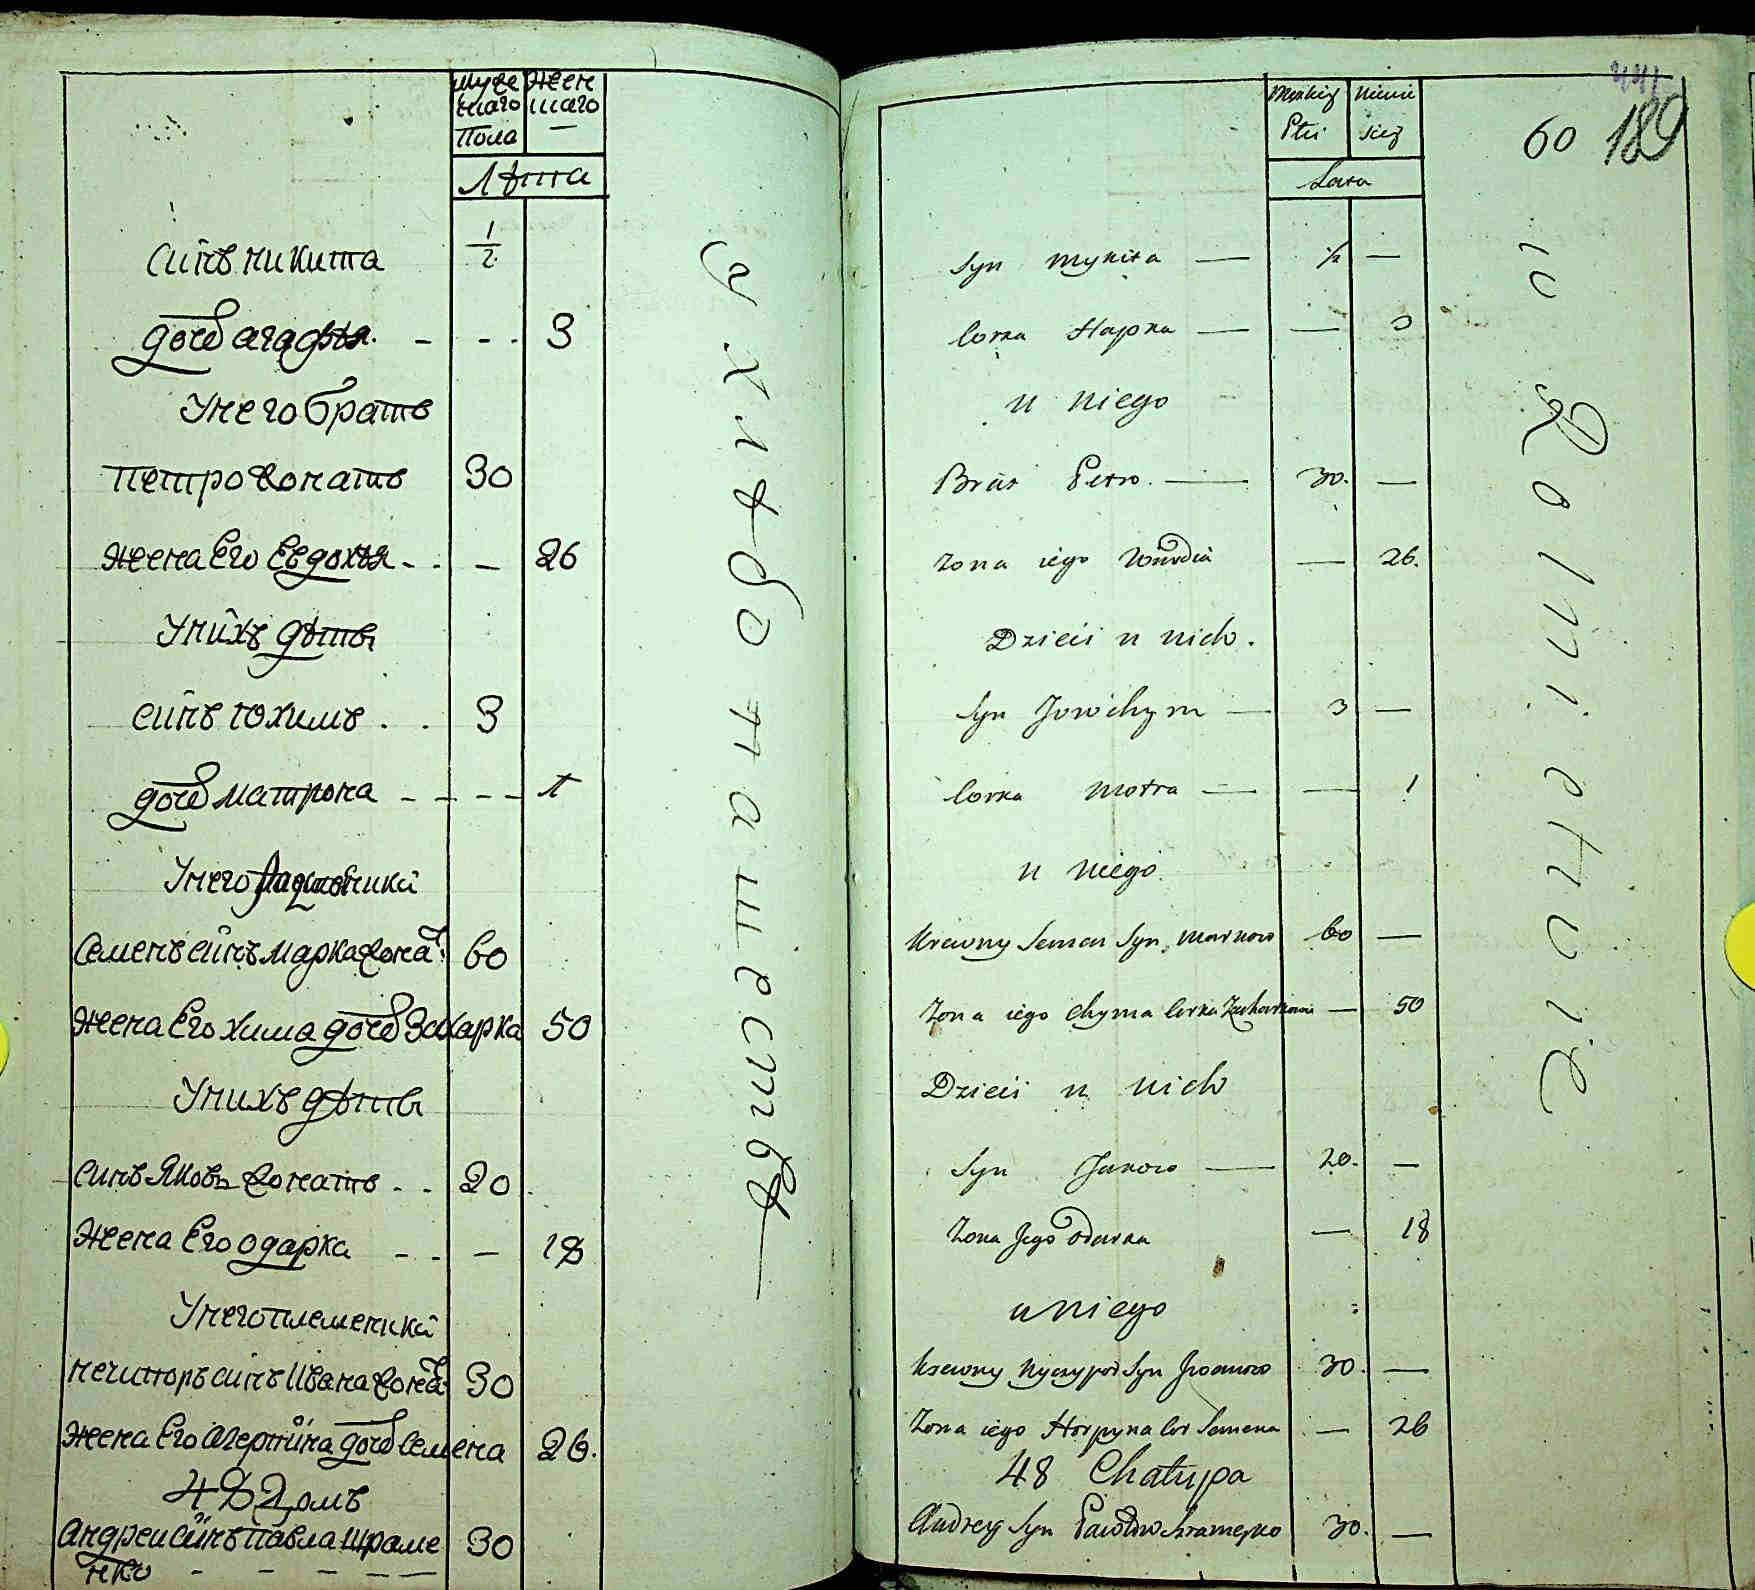 Муже Женс
скаго скаго
Пола —
Лѣта
Синъ никита 1/2
дочь агафія. - - - 3
Унего братъ
петро Конатъ 30
жена Его Евдокія - - — 26
Унихъ дѣти
синъ юхимъ . . 3
дочь матрона - - - - 1
Унего
Семенъ синъ Марка Кона т. 60
жена Его хима дочь Захарка 50
Унихъ дѣти
Синъ Яковъ Конатъ - . 20
Жена Его одарка - - — 18
Унего племеники
нечипоръ синъ Ивана Конат. 30
жена Его агепіна дочь Семена 26.
48 Домъ
Андреи синъ Павла Шраме 30
нко - - - — —
Męskiey Żeńs
Płci kiey
Lata
60 189
441
Syn Mykita — 1/2 —
Corka Hapka — — 3
u niego
Brat Petro. — 30. —
Zona iego — 26.
Dzieci u nich.
Syn Jowchym — 3 —
Corka Motra — — 1
u niego
Krewny Semen Syn Markow 60 —
Zona iego Chyma Corka Zacharkowa — 50
Dzieci u nich
Syn Jakow — 20. —
Zona Jego Odarka — 18
u niego
Krewny Nyczypor Syn Iwanow 30. —
Zona iego Horpyna Cor Semena — 26
48 Chałupa
Andrey Syn Pawłow Szramejko 30. —